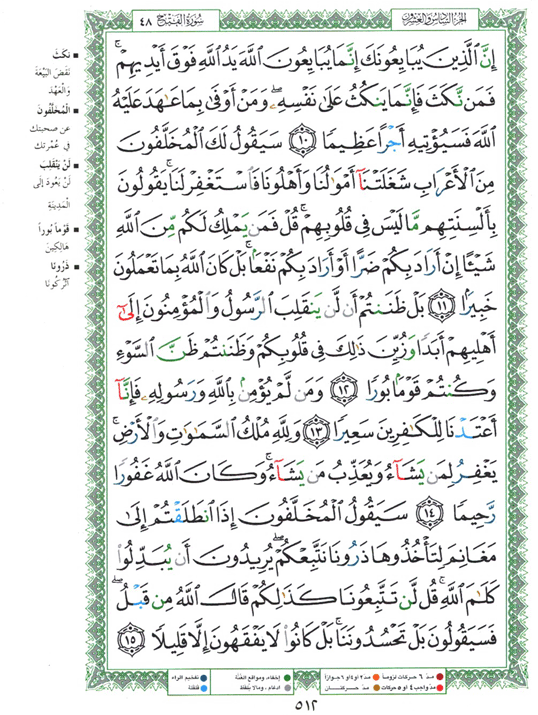 الجزء السادس والعشرون
سورة الفتح ٤٨
إِنَّ ٱلَّذِينَ يُبَايِعُونَكَ إِنَّمَا يُبَايِعُونَ ٱللَّهَ يَدُ ٱللَّهِ فَوْقَ أَيْدِيهِمْ ۚ
فَمَن نَّكَثَ فَإِنَّمَا يَنكُثُ عَلَىٰ نَفْسِهِۦ ۖ وَمَنْ أَوْفَىٰ بِمَا عَـٰهَدَ عَلَيْهُ
ٱللَّهَ فَسَيُؤْتِيهِ أَجْرًا عَظِيمًا ١٠ سَيَقُولُ لَكَ ٱلْمُخَلَّفُونَ
مِنَ ٱلْأَعْرَابِ شَغَلَتْنَآ أَمْوَٰلُنَا وَأَهْلُونَا فَٱسْتَغْفِرْ لَنَا ۚ يَقُولُونَ
بِأَلْسِنَتِهِم مَّا لَيْسَ فِى قُلُوبِهِمْ ۚ قُلْ فَمَن يَمْلِكُ لَكُم مِّنَ ٱللَّهِ
شَيْـًٔا إِنْ أَرَادَ بِكُمْ ضَرًّا أَوْ أَرَادَ بِكُمْ نَفْعًۢا ۚ بَلْ كَانَ ٱللَّهُ بِمَا تَعْمَلُونَ
خَبِيرًۢا ١١ بَلْ ظَنَنتُمْ أَن لَّن يَنقَلِبَ ٱلرَّسُولُ وَٱلْمُؤْمِنُونَ إِلَىٰٓ
أَهْلِيهِمْ أَبَدًا وَزُيِّنَ ذَٰلِكَ فِى قُلُوبِكُمْ وَظَنَنتُمْ ظَنَّ ٱلسَّوْءِ
وَكُنتُمْ قَوْمًۢا بُورًا ١٢ وَمَن لَّمْ يُؤْمِنۢ بِٱللَّهِ وَرَسُولِهِۦ فَإِنَّآ
أَعْتَدْنَا لِلْكَـٰفِرِينَ سَعِيرًا ١٣ وَلِلَّهِ مُلْكُ ٱلسَّمَـٰوَٰتِ وَٱلْأَرْضِ ۚ
يَغْفِرُ لِمَن يَشَآءُ وَيُعَذِّبُ مَن يَشَآءُ ۚ وَكَانَ ٱللَّهُ غَفُورًا
رَّحِيمًا ١٤ سَيَقُولُ ٱلْمُخَلَّفُونَ إِذَا ٱنطَلَقْتُمْ إِلَىٰ
مَغَانِمَ لِتَأْخُذُوهَا ذَرُونَا نَتَّبِعْكُمْ ۖ يُرِيدُونَ أَن يُبَدِّلُوا۟
كَلَـٰمَ ٱللَّهِ ۚ قُل لَّن تَتَّبِعُونَا كَذَٰلِكُمْ قَالَ ٱللَّهُ مِن قَبْلُ ۖ
فَسَيَقُولُونَ بَلْ تَحْسُدُونَنَا ۚ بَلْ كَانُوا۟ لَا يَفْقَهُونَ إِلَّا قَلِيلًا ١٥
نكث
نقض البيعة
والعهد
المخلفون
عن صحبتك
في عمرتك
لن ينقلب
لن يعود إلى
المدينة
قومًا بورًا
هالكين
ذرونا
اتركونا
مد ٦ حركات لزوماً مد ٢ أو ٤ أو ٦ جوازاً إخفاء، ومواقع الغنة تفخيم الراء
مد واجب ٤ أو ٥ حركات مد حركتان إدغام، وما لا يلفظ قلقلة
٥١٢